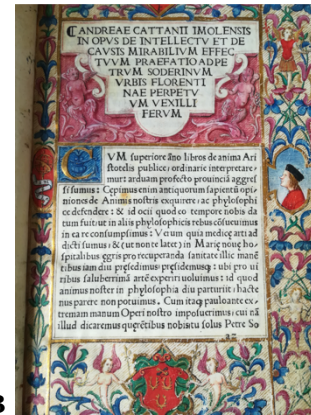 CANDREAE CATTANII IMOLENSIS
IN OPVS DE INTELLECTV ET DE
CAVSIS MIRABILIVM EFFEC
TVVM PRAEFATIO AD PE
TRVM SODERINVM
VRBIS FLORENTI
NAE PERPETV
VM VEXILLI
FERVM
CVM superiore āno libros de anima Ari
stotelis publice, ordinarie interpretare
mur: arduam profecto prouinciā aggres
si sumus: Cępimus enim antiquorum sapientū opi-
niones de Animis nostris exquirere: ac phylosophi
ce defendere: & id ocii quod eo tempore nobis da
tum fuit: ut in aliis phylosophicis rebus cōsueuimus
in ea re consumpsimus: Verum quia medicę arti ad
dicti sumus: & (ut non te latet) in Marię nouę ho,
spitalibus ęgris pro recuperanda sanitate illic manē
tibus iam diu pręfedimus: pręsidemusq: ubi pro ui
ribus saluberrimā artē experiri uoluimus: id quod
animus noster in phylosophia diu parturit: hacte
nus parere non potuimus. Cum itaq paulo ante ex,
tremam manum Operi nostro imposuerimus: cui nā
illud dicaremus quęrētibus nobis tu solus Petre So
B